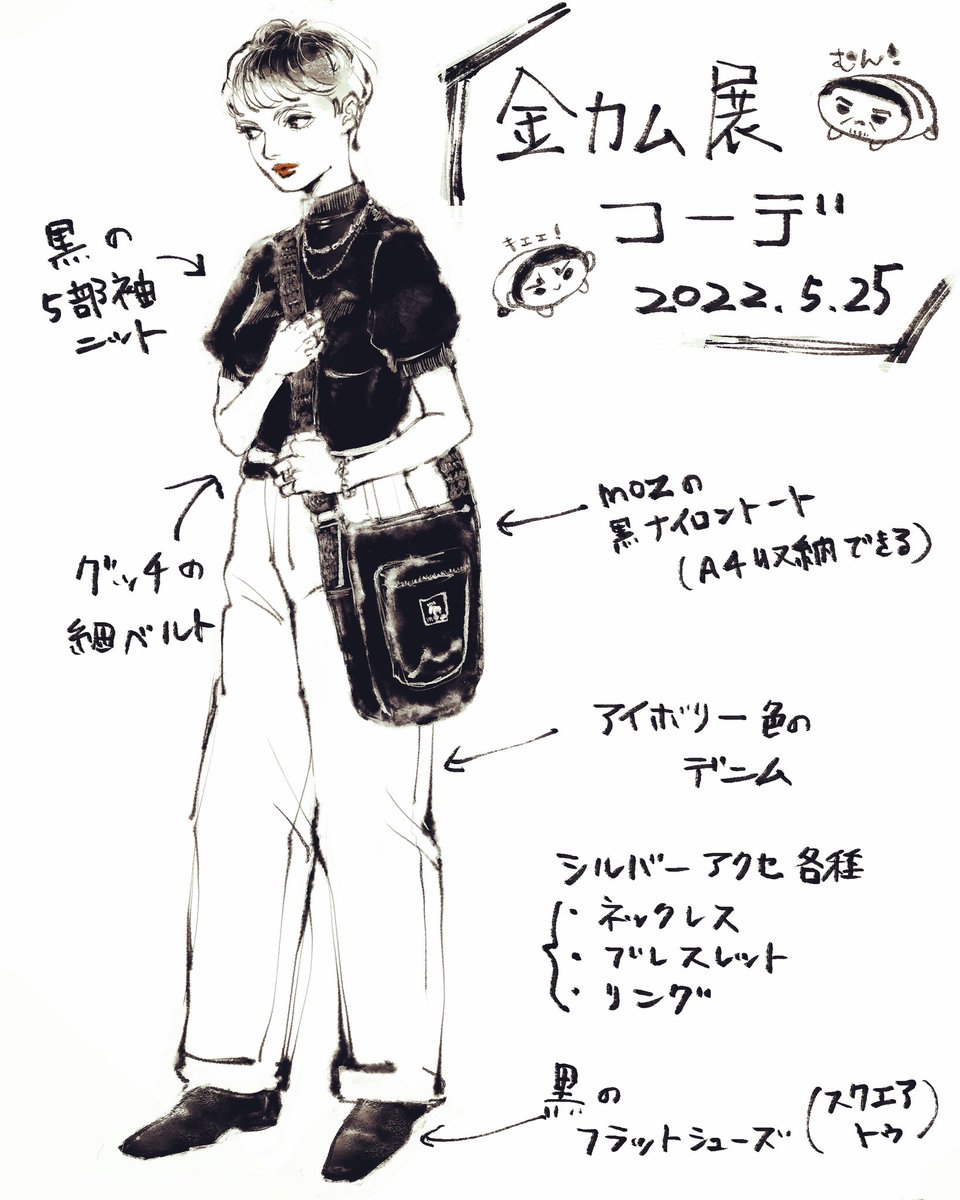 金カム展
コーデ
2022.5.25
むん!
キエェ!
黒の
5部袖
ニット
グッチの
細ベルト
mozの
黒ナイロントート
(A4収納できる)
アイボリー色の
デニム
シルバーアクセ各種
・ネックレス
・ブレスレット
・リング
黒の
フラットシューズ
(スクエア
トゥ)